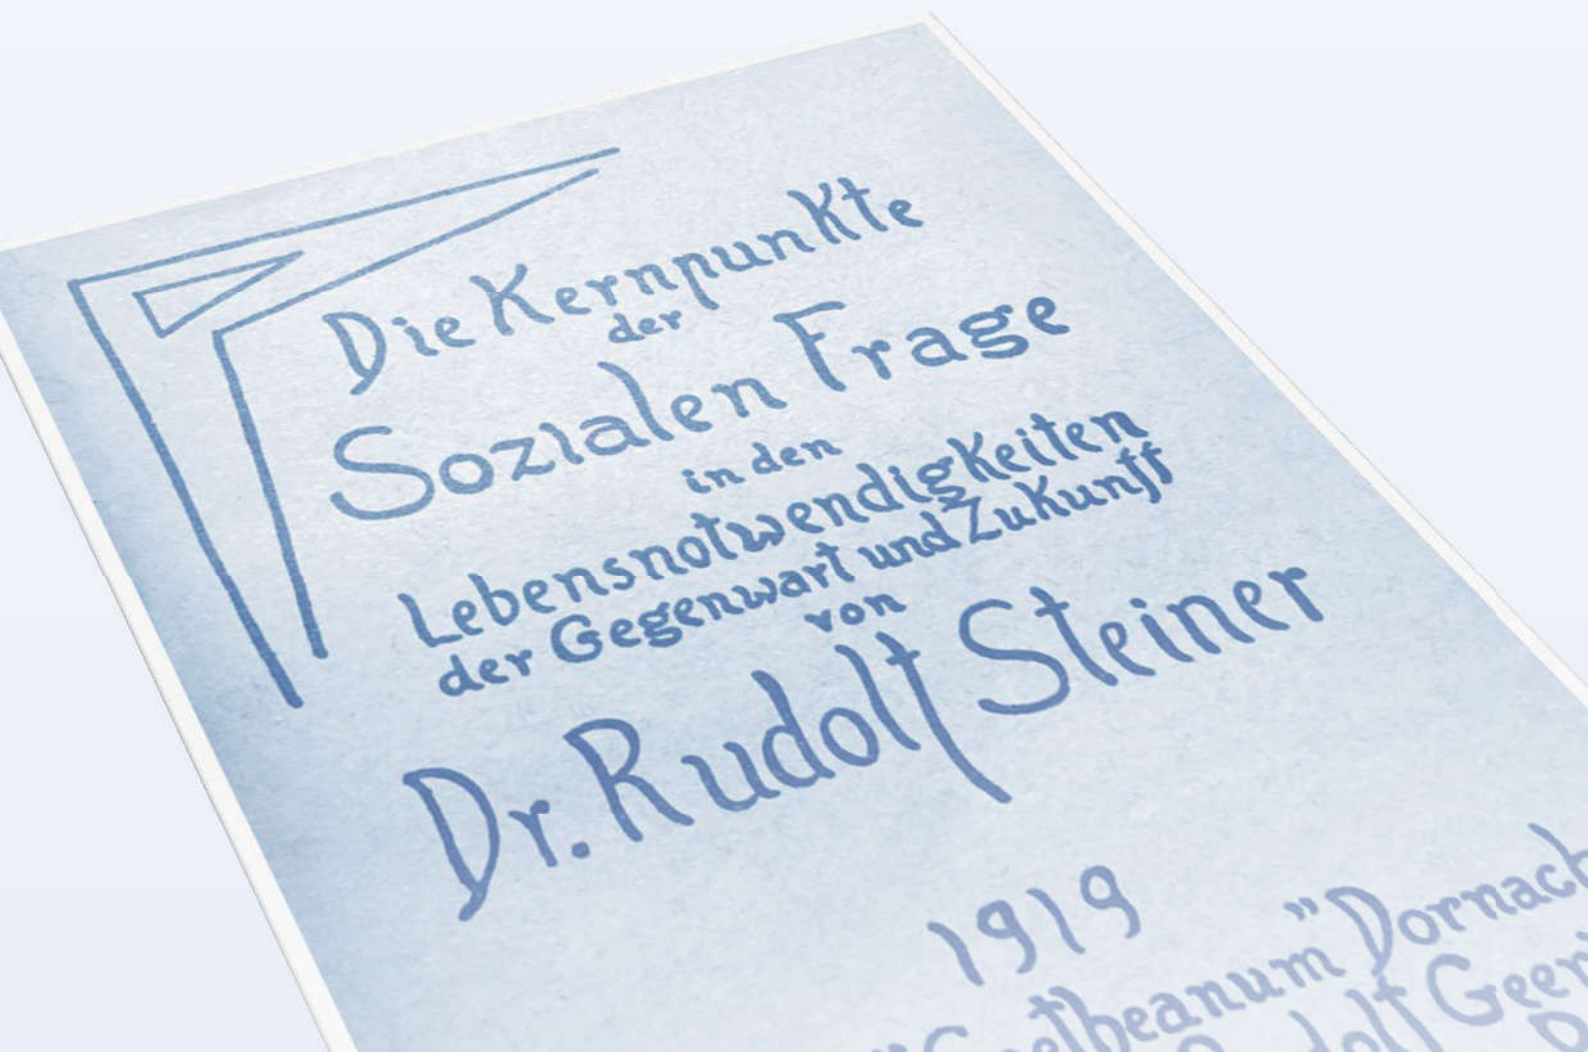 Die Kernpunkte
der
Sozialen Frage
in den
Lebensnotwendigkeiten
der Gegenwart und Zukunft
von
Dr. Rudolf Steiner
1919
Goetheanum" Dornach
Rudolf Geeri